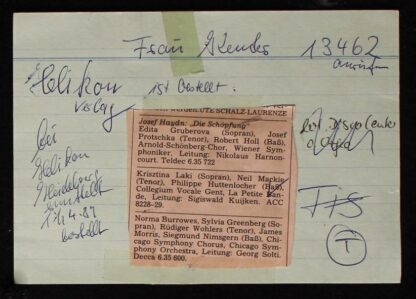 Frau 13462
Helikon
Verlag ist bestellt.
bei
Helikon
Heidelberg
bestellt
werden. UTE SCHALZ-LAURENZE
Josef Haydn: „Die Schöpfung"
Edita Gruberova (Sopran), Josef
Protschka (Tenor), Robert Holl (Baß),
Arnold-Schönberg-Chor, Wiener Sym-
phoniker, Leitung: Nikolaus Harnon-
court. Teldec 6.35 722
Krisztina Laki (Sopran), Neil Mackie
(Tenor), Philippe Huttenlocher (Baß),
Collegium Vocale Gent, La Petite Ban-
de, Leitung: Sigiswald Kuijken. ACC
8228–29.
Norma Burrowes, Sylvia Greenberg (So-
pran), Rüdiger Wohlers (Tenor), James
Morris, Siegmund Nimsgern (Baß), Chi-
cago Symphony Chorus, Chicago Sym-
phony Orchestra, Leitung: Georg Solti.
Decca 6.35 600.
T